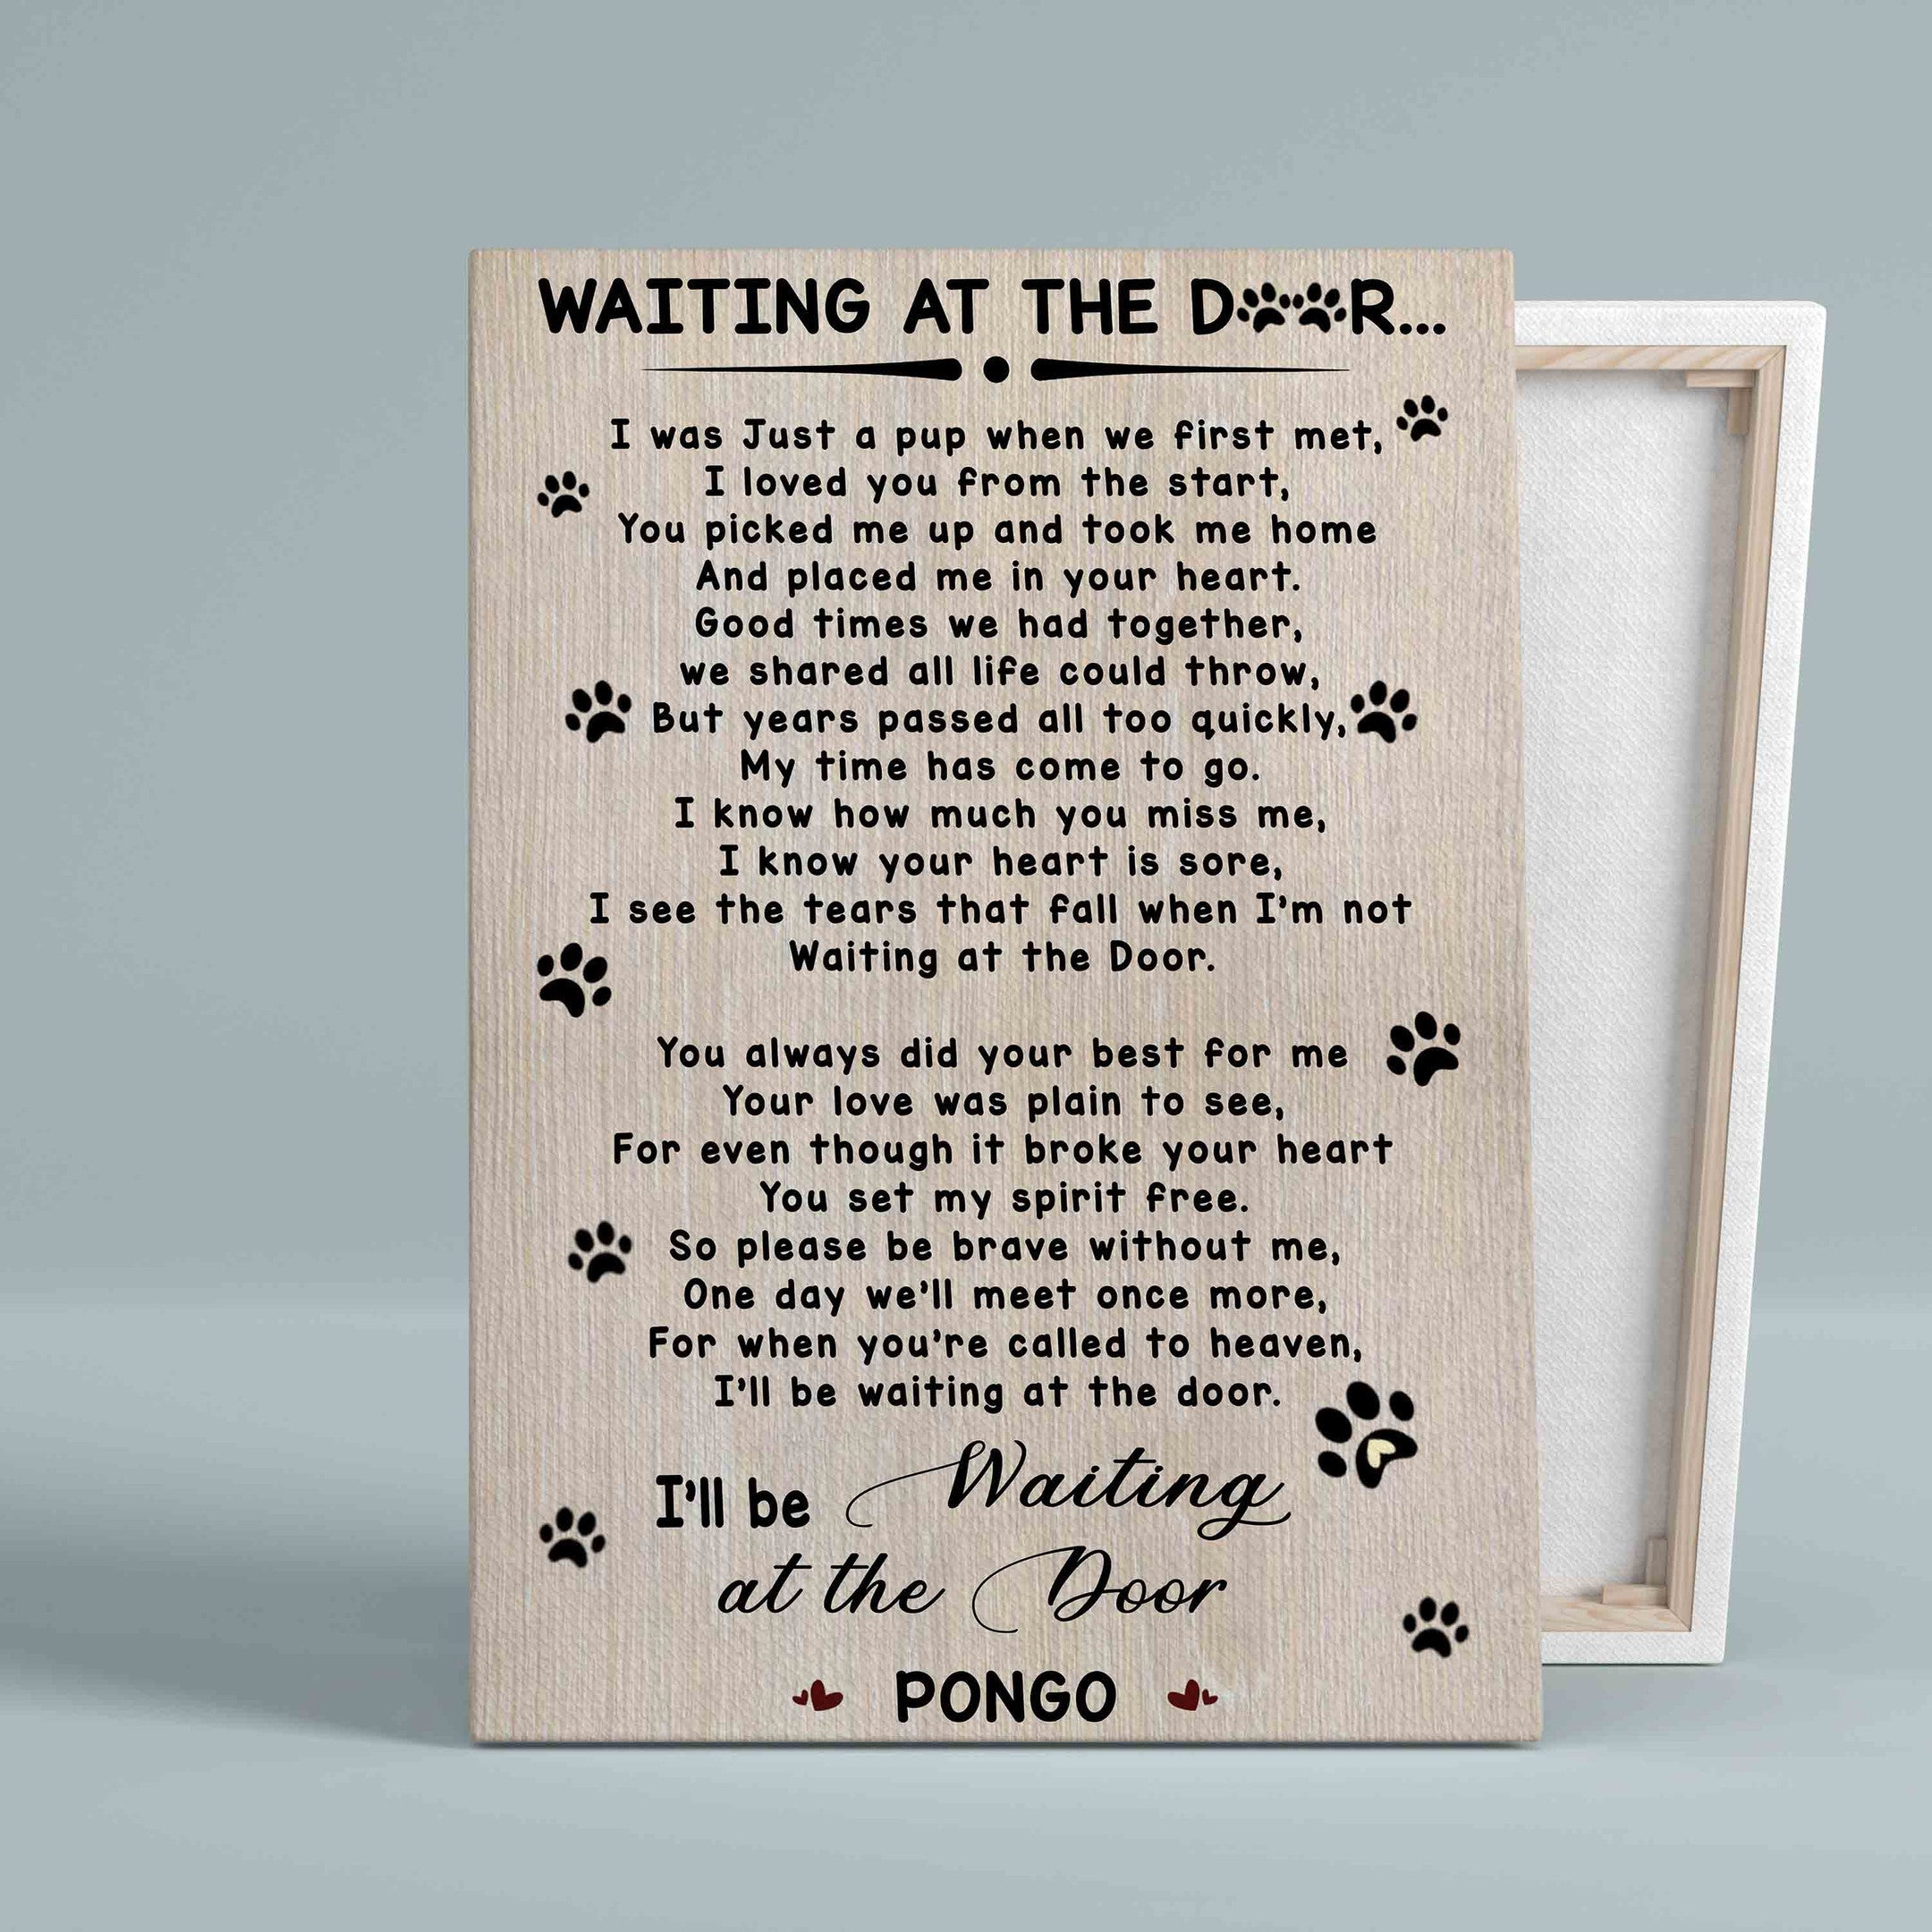 WAITING AT THE DOOR...
I was Just a pup when we first met,
I loved you from the start,
You picked me up and took me home
And placed me in your heart.
Good times we had together,
we shared all life could throw,
But years passed all too quickly,
My time has come to go.
I know how much you miss me,
I know your heart is sore,
I see the tears that fall when I'm not
Waiting at the Door.
You always did your best for me
Your love was plain to see,
For even though it broke your heart
You set my spirit free.
So please be brave without me,
One day we'll meet once more,
For when you're called to heaven,
I'll be waiting at the door.
I'll be Waiting
at the Door
PONGO